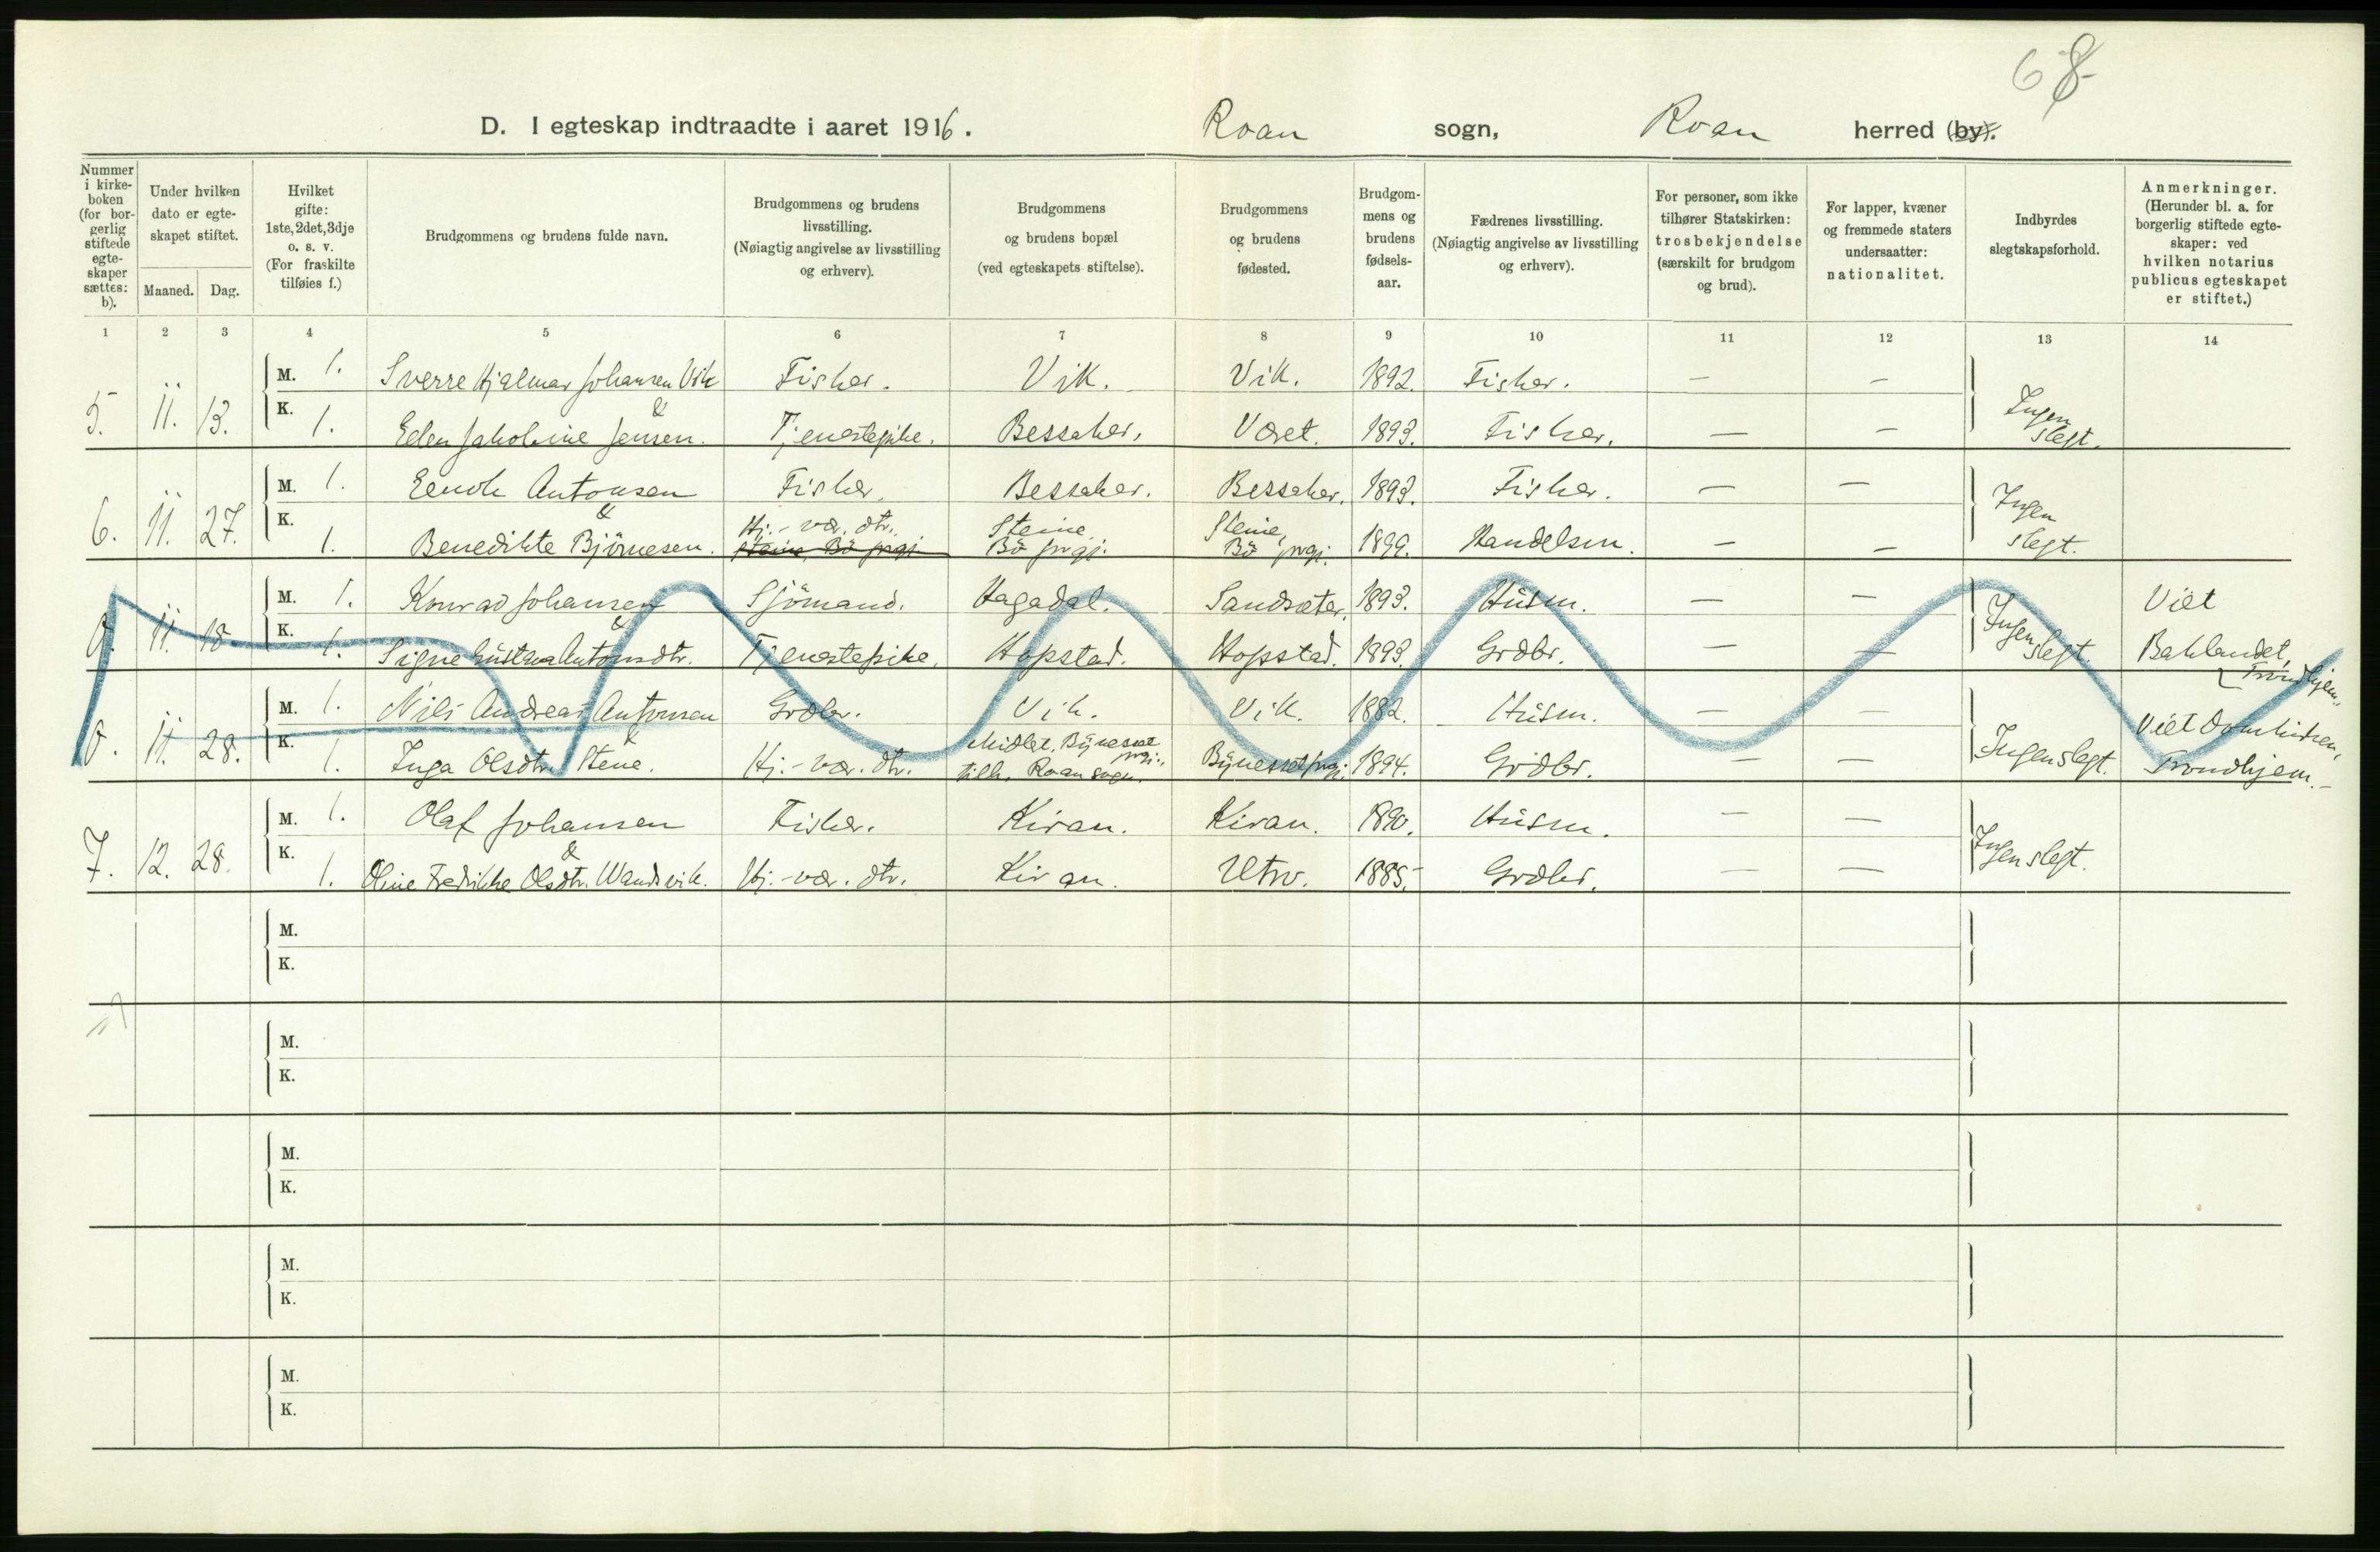 68
D. I egteskap indtraadte i aaret 1916. Roan sogn, Roan herred (by).
Nummer i kirke-boken (for bor-gerlig stiftede egte-skaper sættes: b).
Under hvilken dato er egte-skapet stiftet.
Maaned. Dag.
Hvilket gifte: 1ste, 2det, 3dje o. s. v. (For fraskilte tilføies f.)
Brudgommens og brudens fulde navn.
Brudgommens og brudens livsstilling. (Nøiagtig angivelse av livsstilling og erhverv).
Brudgommens og brudens bopæl (ved egteskapets stiftelse).
Brudgommens og brudens fødested.
Brudgom-mens og brudens fødsels-aar.
Fædrenes livsstilling. (Nøiagtig angivelse av livsstilling og erhverv).
For personer, som ikke tilhører Statskirken: trosbekjendelse (særskilt for brudgom og brud).
For lapper, kvæner og fremmede staters undersaatter: nationalitet.
Indbyrdes slegtskapsforhold.
Anmerkninger. (Herunder bl. a. for borgerlig stiftede egte-skaper: ved hvilken notarius publicus egteskapet er stiftet.)
1 2 3 4 5 6 7 8 9 10 11 12 13 14
5. 11. 13. M. 1. Sverre Hjalmar Johansen Vik Fisker. Vik. Vik. 1892. Fisker. — — Ingen slegt.
&
K. 1. Elen Jakobine Jensen. Tjenestepike. Bessaker. Været. 1893. Fisker. — —
6. 11. 27. M. 1. Enok Antonsen Fisker. Bessaker. Bessaker. 1893. Fisker. — — Ingen slegt.
&
K. 1. Benedikte Björnesen. Hj.-vær. dtr. Steine Bö prgj. Steine, Bö prgj. 1899. Handelsm. — —
0. 11. 18. M. 1. Konrad Johansen Sjömand. Hagadal. Sandsæter. 1893. Husm. — — Ingen slegt. Viet Baklandet, Trondhjem.
&
K. 1. Signe Gustava Antonsdtr. Tjenestepike. Hopstad. Hopstad. 1893. Grdbr. — —
0. 11. 28. M. 1. Nils Andreas Antonsen Grdbr. Vik. Vik. 1882. Husm. — — Ingen slegt. Viet Domkirken, Trondhjem.
&
K. 1. Inga Olsdtr. Stene. Hj.-vær. dtr. Midlet. Bynesset prgj., tilh. Roan sogn. Bynesset prgj. 1894. Grdbr. — —
7. 12. 28. M. 1. Olaf Johansen Fisker. Kiran. Kiran. 1890. Husm. — — Ingen slegt.
&
K. 1. Oline Fredrikke Olsdtr. Wandsvik. Hj.-vær. dtr. Kiran. Utro. 1885. Grdbr. — —
M.
K.
M.
K.
M.
K.
M.
K.
M.
K.